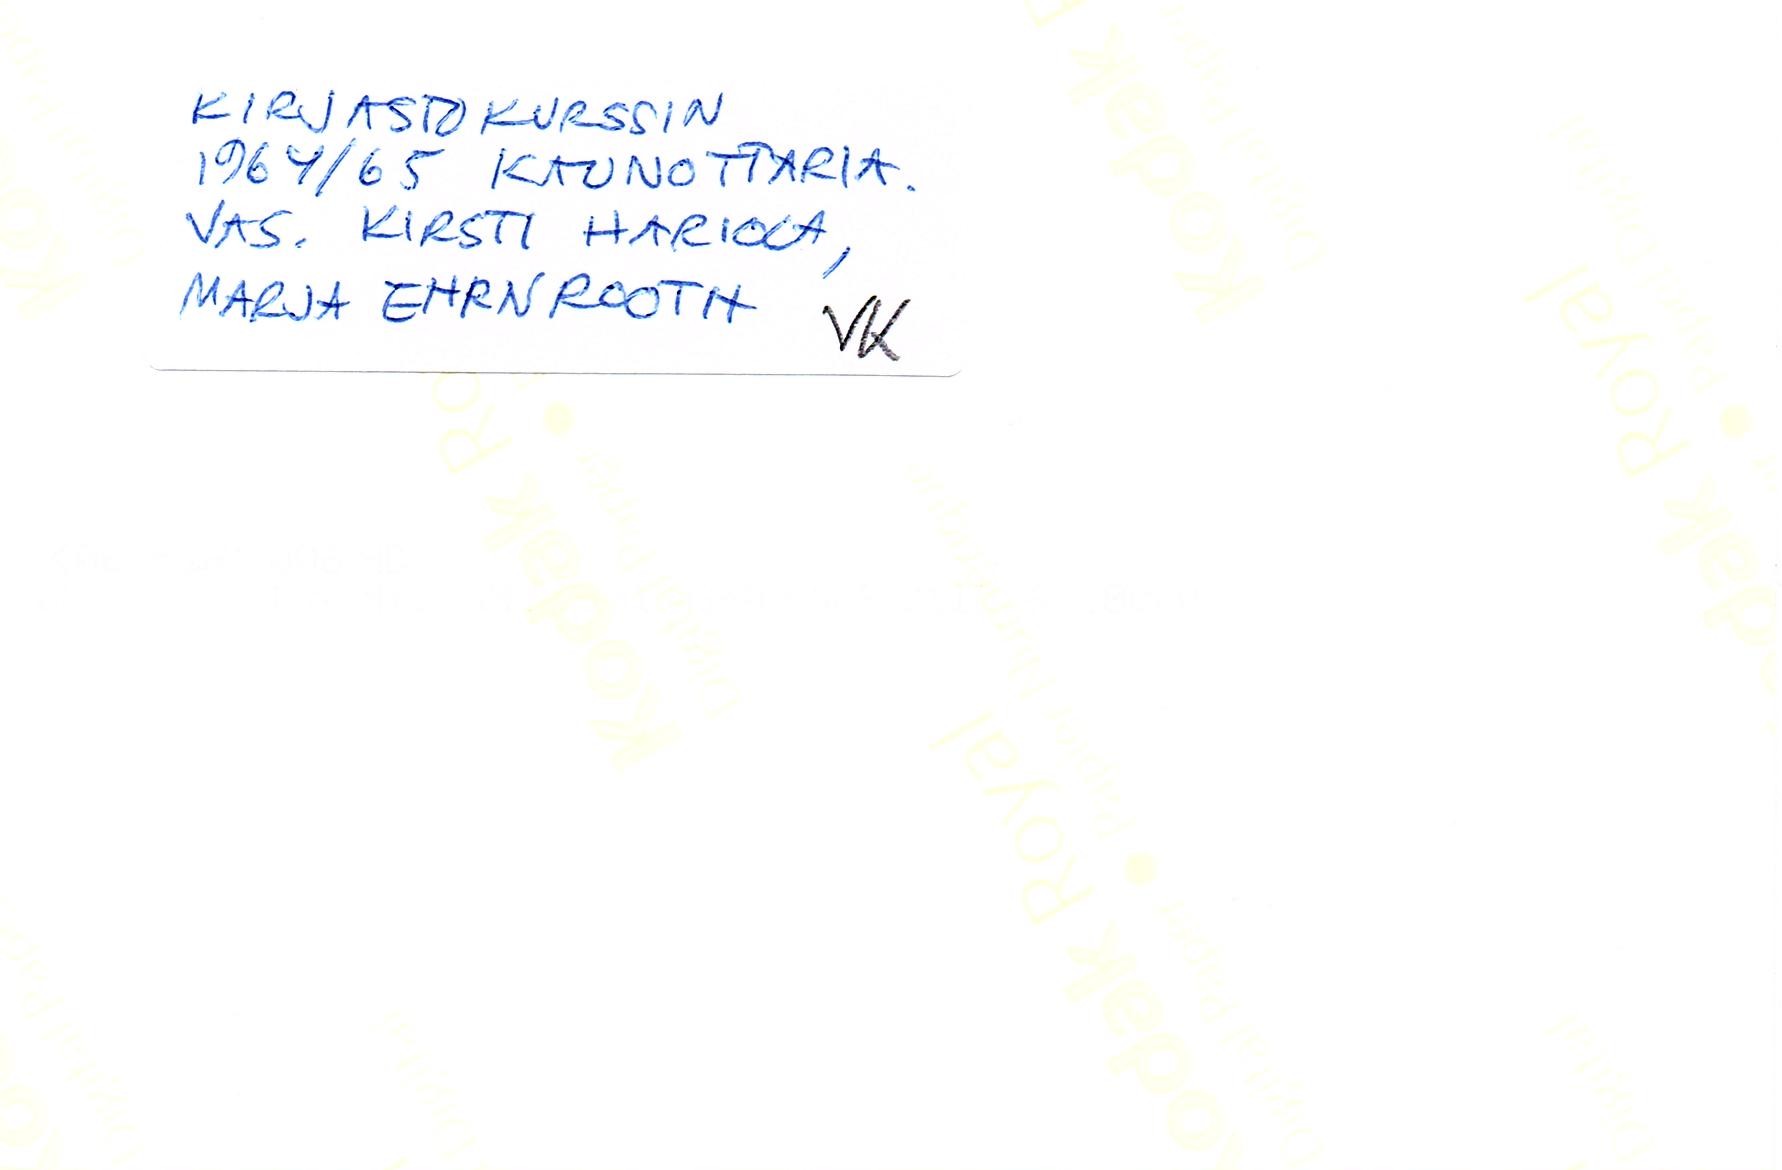 KIRJASTOKURSSIN
1964/65 KAUNOTTARIA.
VAS. KIRSTI HARIOLA,
MARJA EHRNROOTH VK
Kodak Royal
Digital Paper
Kodak Royal
Digital Paper
Kodak Royal
Digital Paper